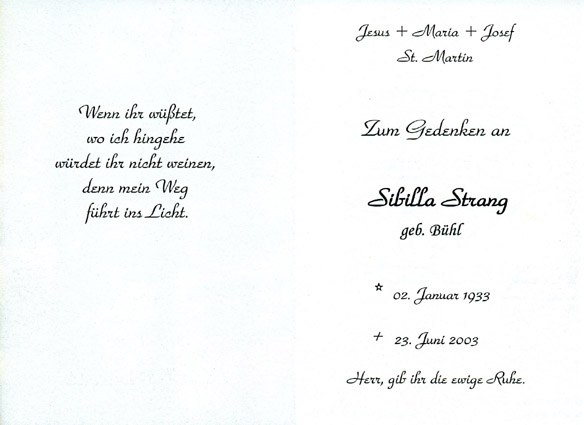 Wenn ihr wüßtet,
wo ich hingehe
würdet ihr nicht weinen,
denn mein Weg
führt ins Licht.
Jesus + Maria + Josef
St. Martin
Zum Gedenken an
Sibilla Strang
geb. Bühl
☆ 02. Januar 1933
+ 23. Juni 2003
Herr, gib ihr die ewige Ruhe.